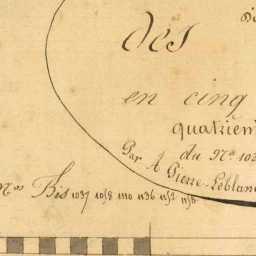 des
en cinq
quatrièm
du Nº 103
Par A Pierre-Leblanc
Nos Bis 1037 1058 1110 1136 1152 1158